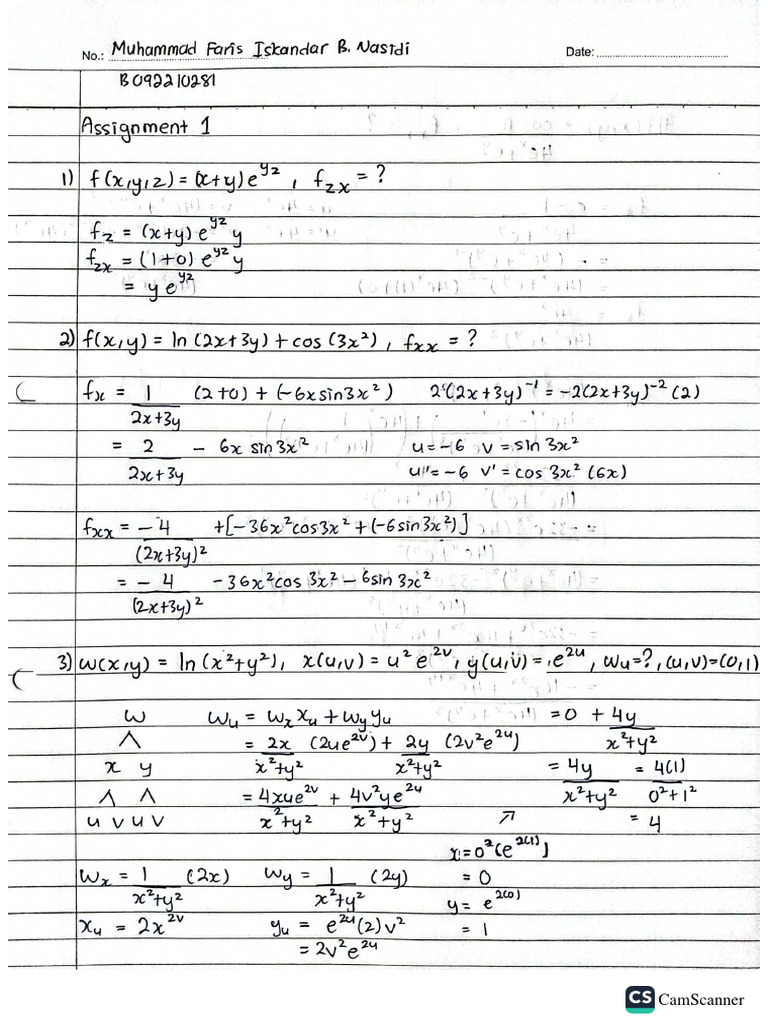 No.: Muhammad Faris Iskandar B. Nasidi Date:
B092210281
Assignment 1
1) f(x,y,z) = (x+y)e^yz , f_zx = ?
f_z = (x+y) e^yz y
f_zx = (1+0) e^yz y
= y e^yz
2) f(x,y) = ln (2x+3y) + cos (3x²) , f_xx = ?
f_x = 1/(2x+3y) (2+0) + (-6x sin3x²) 2(2x+3y)^-1 = -2(2x+3y)^-2 (2)
= 2/(2x+3y) - 6x sin 3x² u=-6 v = sin 3x²
u'=-6 v' = cos 3x² (6x)
f_xx = -4/(2x+3y)² + [-36x²cos3x² + (-6sin3x²)]
= -4/(2x+3y)² - 36x²cos 3x² - 6sin 3x²
3) w(x,y) = ln (x²+y²), x(u,v) = u² e^2v, y(u,v) = e^2u, w_u=?, (u,v)=(0,1)
w w_u = w_x x_u + w_y y_u = 0 + 4y/(x²+y²)
∧ = 2x/(x²+y²) (2ue^2v) + 2y/(x²+y²) (2v²e^2u)
x y = 4y/(x²+y²) = 4(1)/(0²+1²)
∧ ∧ = 4xue^2v/(x²+y²) + 4v²ye^2u/(x²+y²)
u v u v ↗ = 4
x = 0²(e^2(1))
w_x = 1/(x²+y²) (2x) w_y = 1/(x²+y²) (2y) = 0
y = e^2(0)
x_u = 2x^2v y_u = e^2u (2) v² = 1
= 2v²e^2u
CS CamScanner